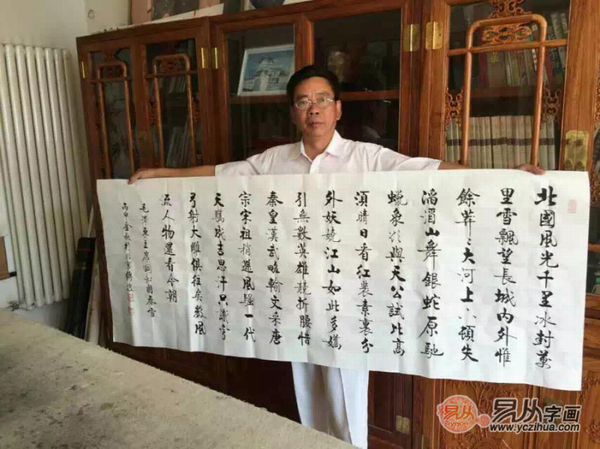 北國風光千里冰封萬
里雪飄望長城内外惟
餘莽〻大河上下頓失
滔滔山舞銀蛇原馳
蠟象欲與天公試比高
須晴日看紅裝素裹分
外妖嬈江山如此多嬌
引無數英雄競折腰惜
秦皇漢武略輸文采唐
宗宋祖稍遜風騷一代
天驕成吉思汗只識彎
弓射大雕俱往矣數風
流人物還看今朝
毛澤東主席詞沁園春雪
丙申金秋於
易从字画
www.yczihua.com